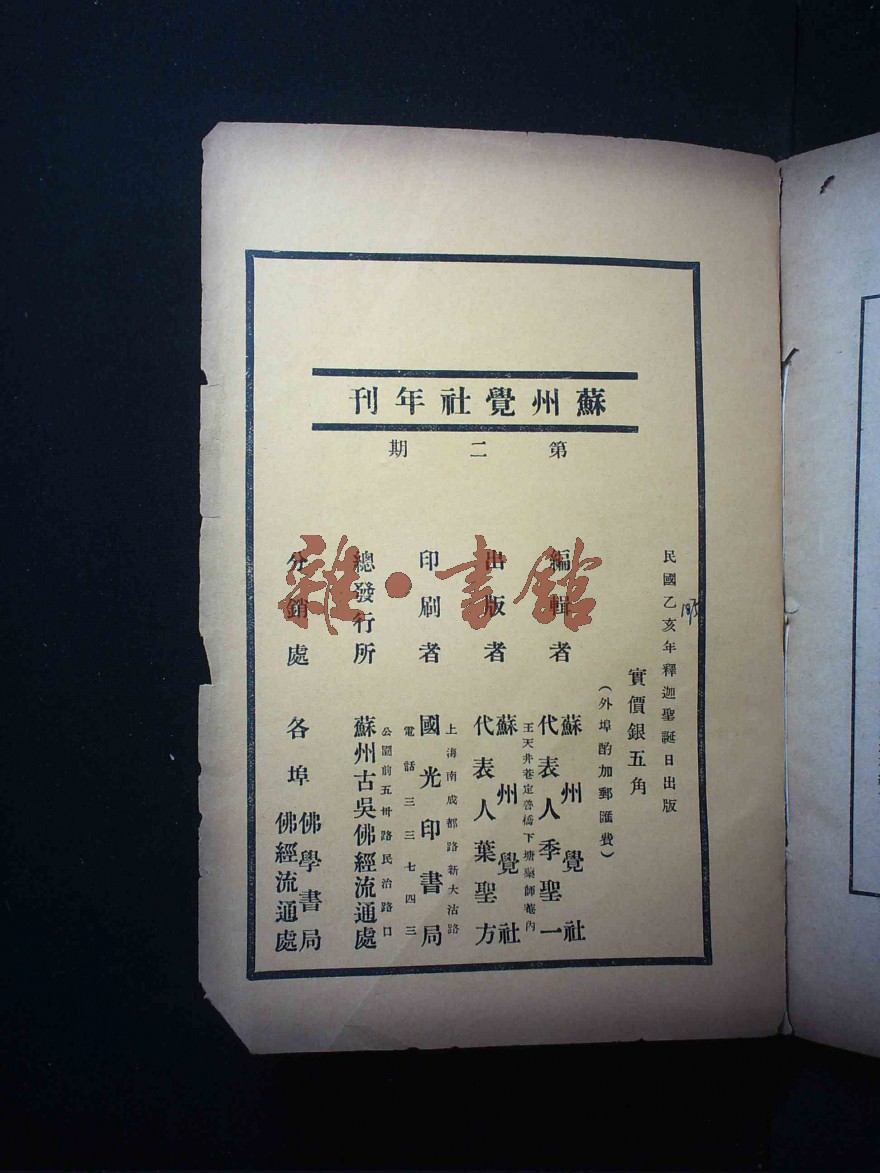 蘇州覺社年刊
第二期
民國乙亥年釋迦聖誕日出版
實價銀五角
（外埠酌加郵匯費）
編輯者
蘇州覺社
代表人季聖一
王天井巷定善橋下塘藥師菴內
出版者
蘇州覺社
代表人葉聖方
印刷者
上海南成都路新大沽路
國光印書局
電話三三七四三
總發行所
公園前五卅路民治路口
蘇州古吳佛經流通處
分銷處
各埠
佛學書局
佛經流通處
雜·書館